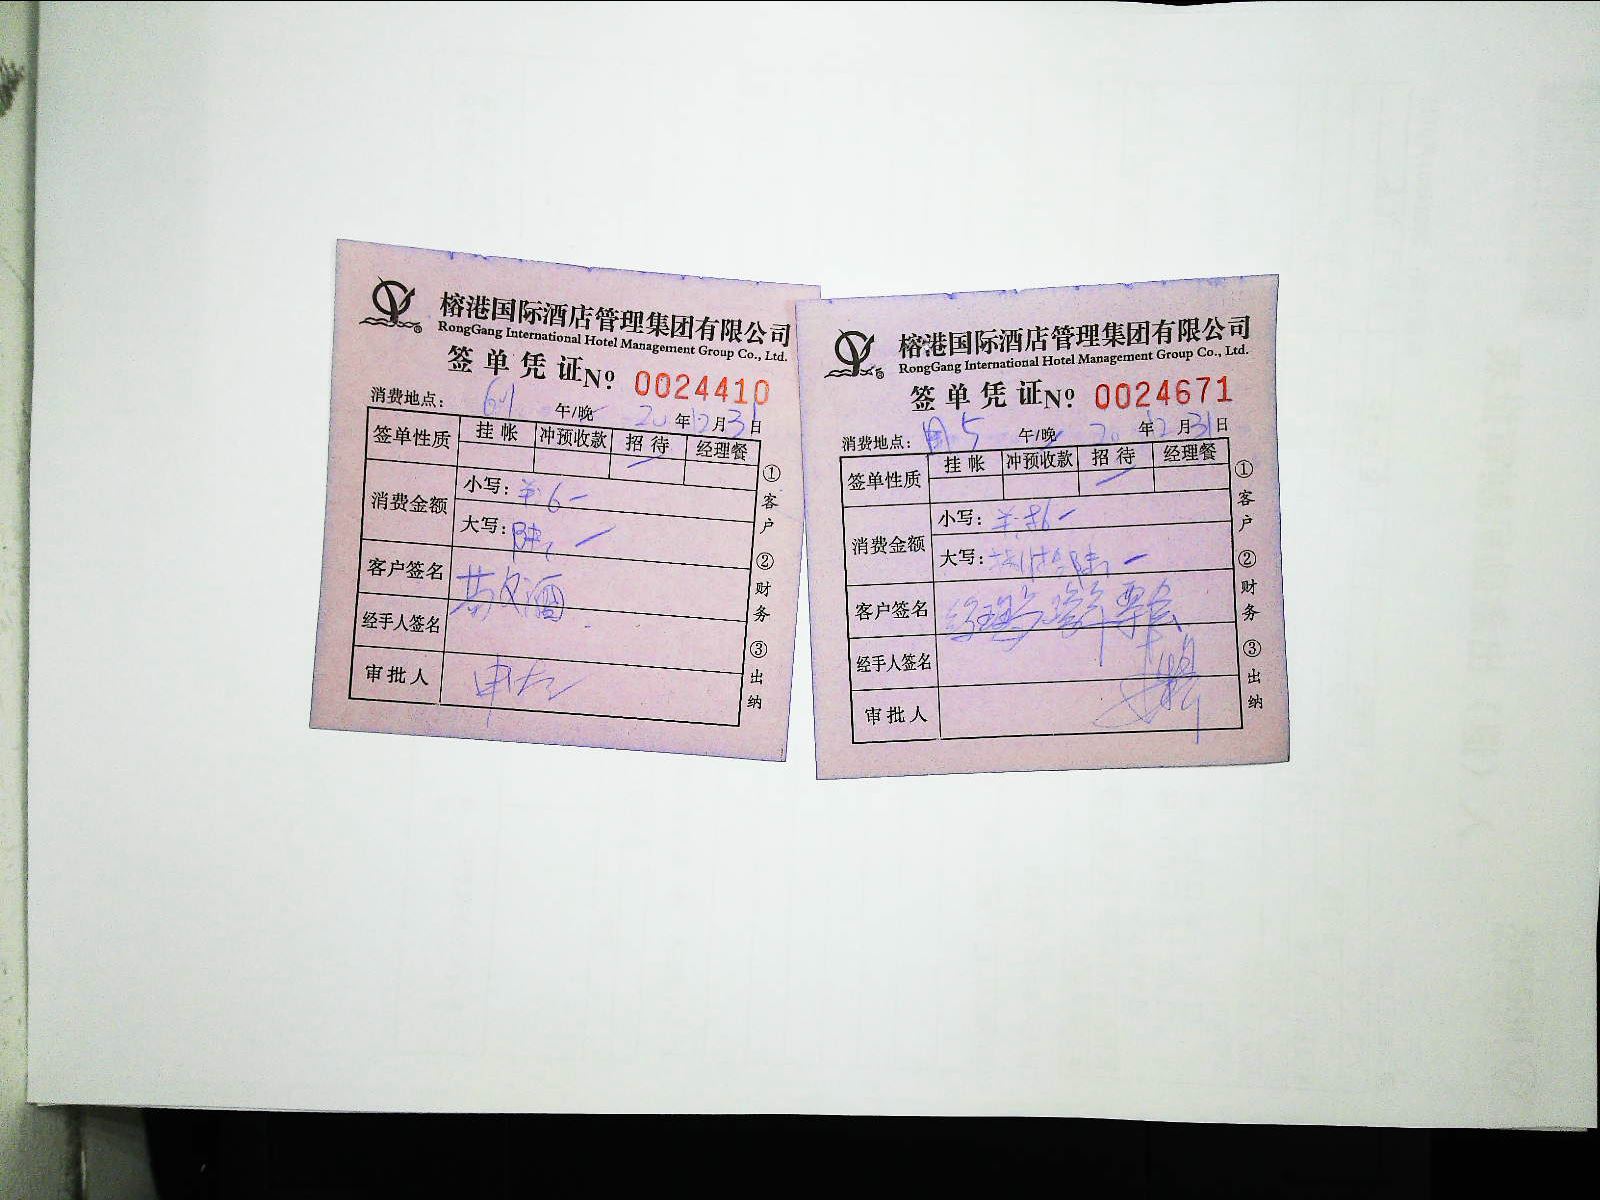 榕港国际酒店管理集团有限公司
RongGang International Hotel Management Group Co., Ltd.
签单凭证 Nº 0024410
消费地点： 601 午/晚 20 年 12 月 31 日
签单性质 挂帐 冲预收款 招待 经理餐
消费金额
小写： 6
大写： 陆
客户签名
经手人签名
审批人
①客户 ②财务 ③出纳
榕港国际酒店管理集团有限公司
RongGang International Hotel Management Group Co., Ltd.
签单凭证 Nº 0024671
消费地点： 5 午/晚 20 年 12 月 31 日
签单性质 挂帐 冲预收款 招待 经理餐
消费金额
小写：
大写：
客户签名 经理
经手人签名
审批人
①客户 ②财务 ③出纳